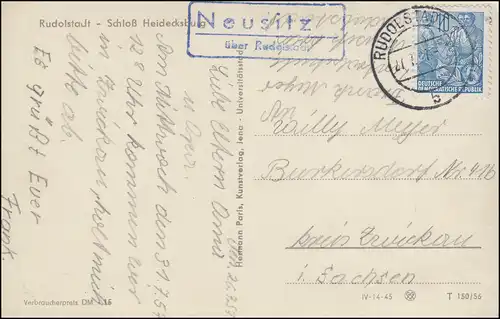 Rudolstadt - Schloß Heidecksburg
Neusitz
über Rudolstadt
RUDOLSTADT
b
DEUTSCHE
DEMOKRATISCHE REPUBLIK
den 26.7.57
Liebe Eltern Oma
u. Opa.
Am Mittwoch den 31.7.57
12 8 Uhr kommen wir
in Zwickau, holt mich
bitte ab.
Es grüßt Euer
Frank.
Frank Meyer
An
Willy Meyer
Burkersdorf Nr. 41b
Kreis Zwickau
i. Sachsen
Hermann Paris, Kunstverlag, Jena - Universitätsstadt
Verbraucherpreis DM
IV-14-45
T 150/56